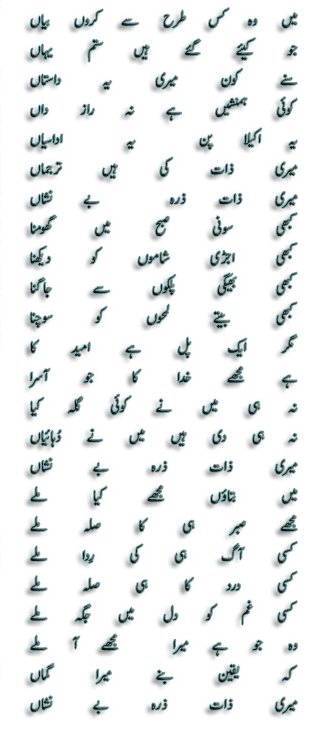 میں وہ کس طرح سے کروں بیاں
جو کیئے گئے ہیں ستم یہاں
سنے کون میری یہ داستاں
کوئی ہمنشیں ہے نہ راز داں
یہ اکیلا پن یہ اداسیاں
میری ذات کی ہیں ترجماں
میری ذات ذرہ بے نشاں
کبھی سونی صبح میں گھومنا
کبھی اجڑی شاموں کو دیکھنا
کبھی بھیگی پلکوں سے جاگنا
کبھی بیتے لمحوں کو سوچنا
مگر ایک پل ہے امید کا
ہے مجھے خدا کا جو آسرا
نہ ہی میں نے کوئی گلہ کیا
نہ ہی دی ہیں میں نے دُہائیاں
میری ذات ذرہ بے نشاں
میں بتاؤں مجھے کیا ملے
مجھے صبر ہی کا صلہ ملے
کسی آگ ہی کی رِدا ملے
کسی درد کا ہی صلہ ملے
کسی غم کو دل میں جگہ ملے
وہ جو ہے میرا مجھے آ ملے
کہ یقین بنے میرا گماں
میری ذات ذرہ بے نشاں